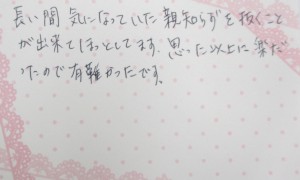 長い間気になっていた親知らずを抜くこと
が出来てほっとしてます。思った以上に楽だ
ったので有難かったです。